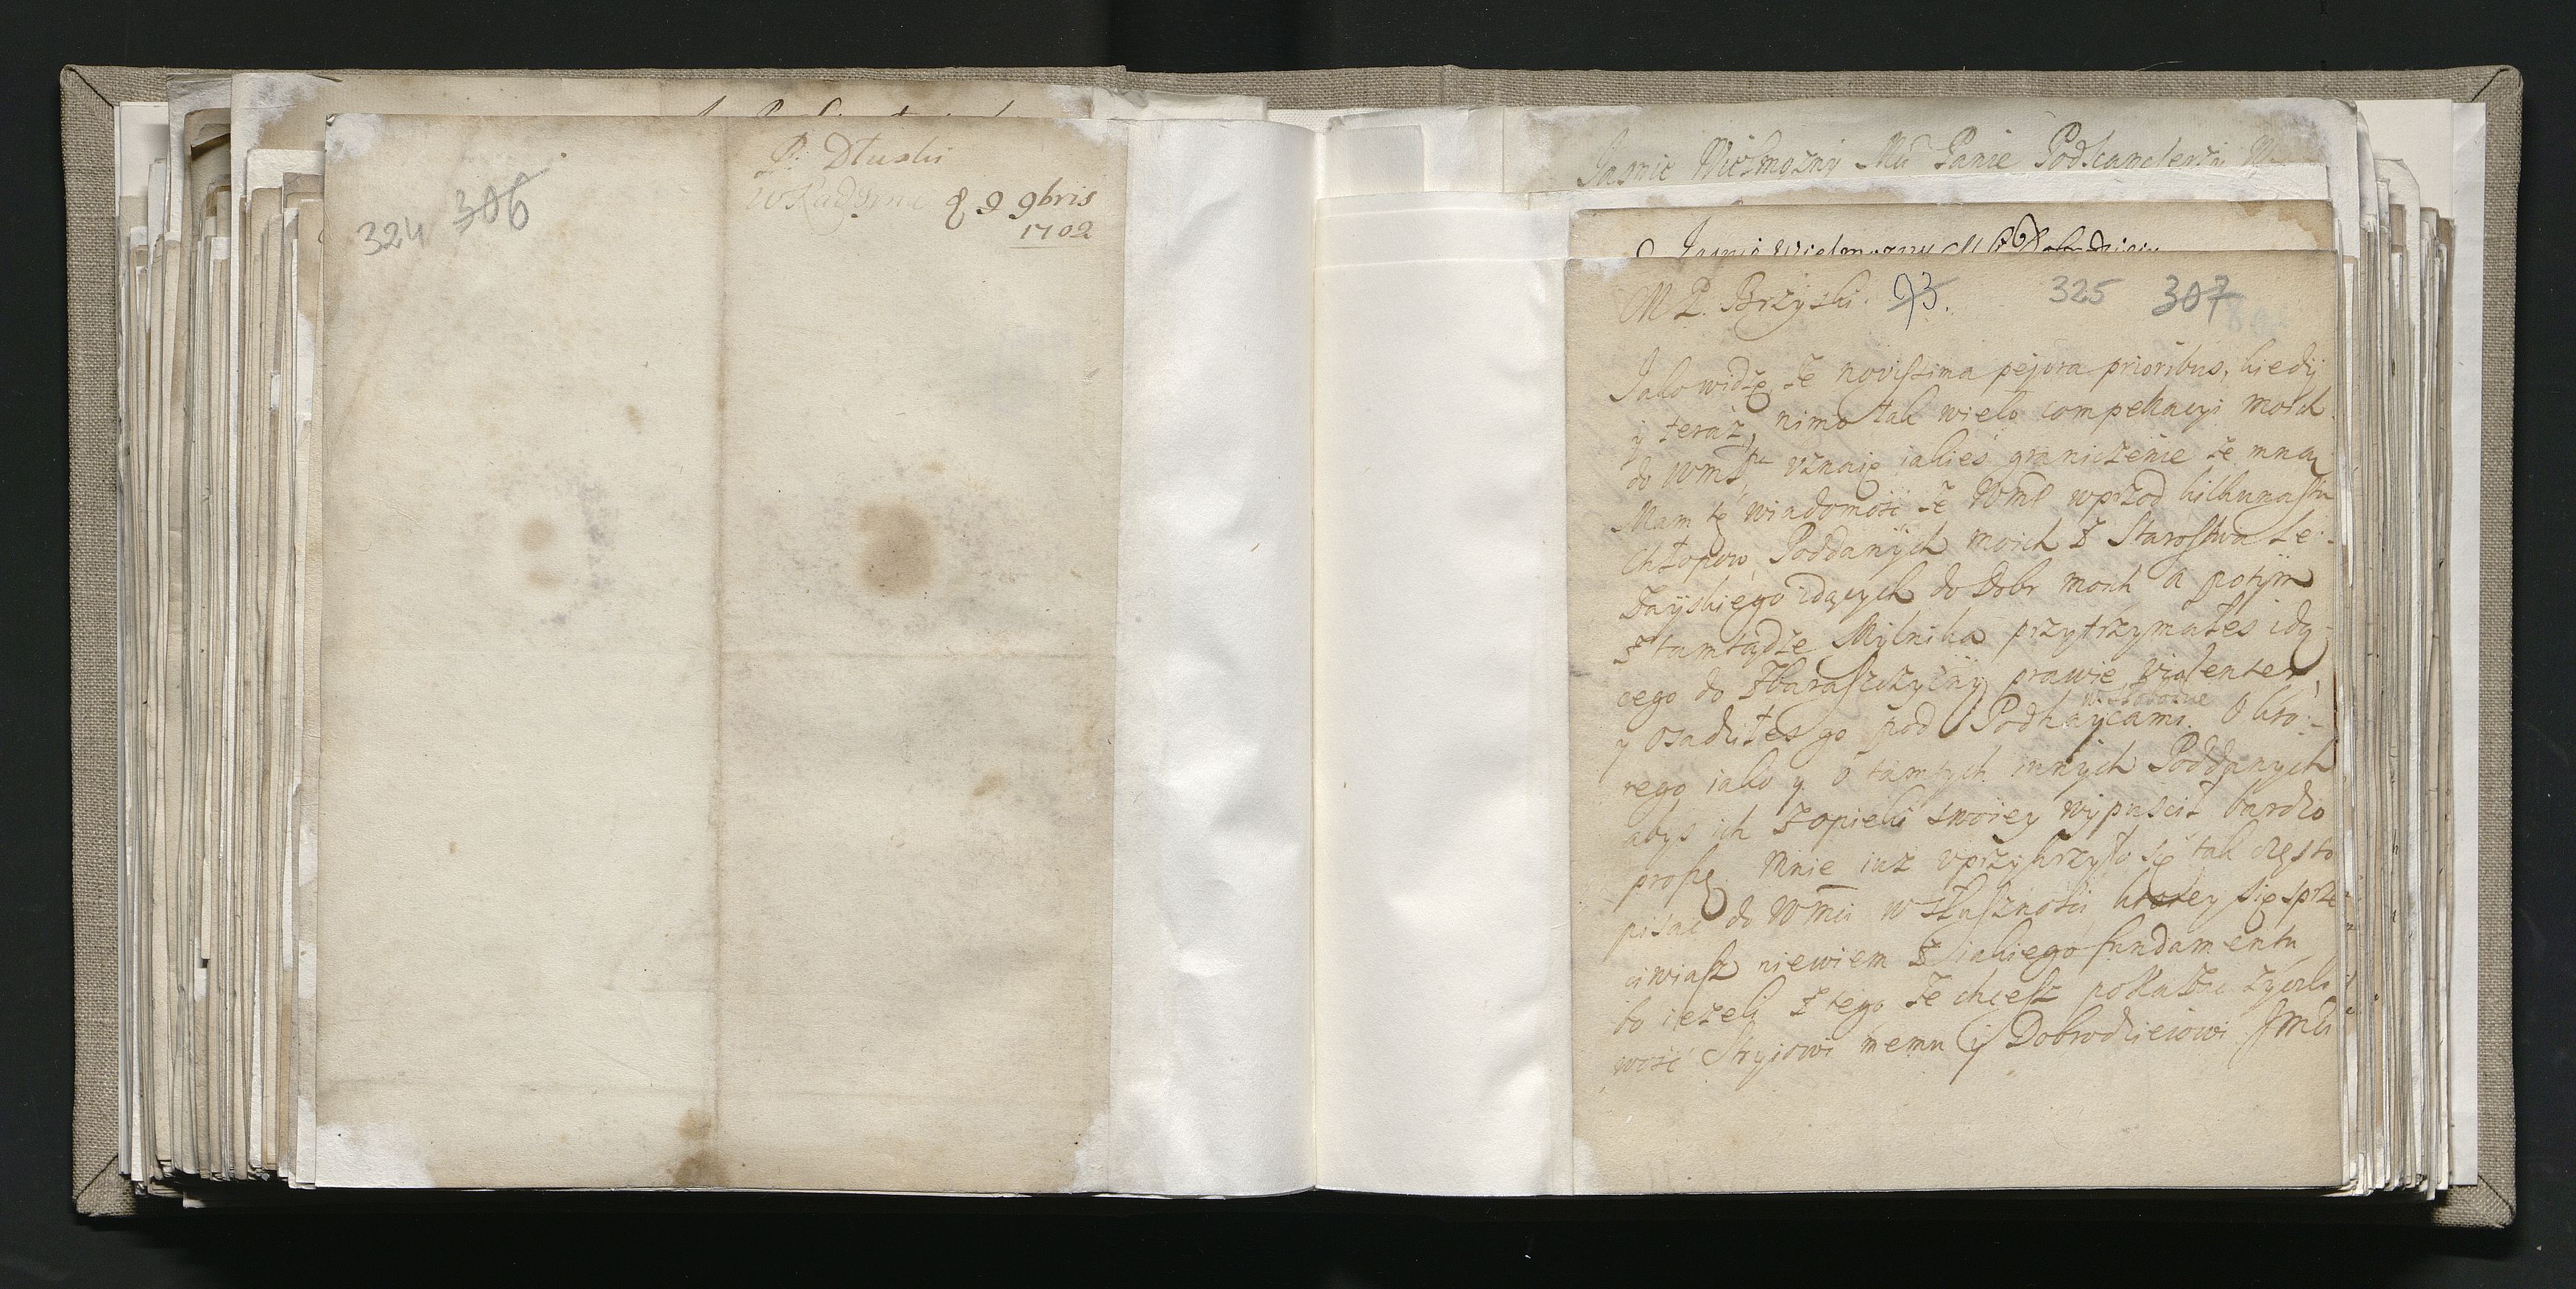 P. Dłuski
w Radymnie 8 9 9bris
1702
324 306
Jasnie Wielmozny Mći Panie Podkanclerzy
Jasnie Wielmozny Mći Dobrodzieiu
M P. Brzyski. 93. 325 307
Jako widzę ze novissima pejora prioribus, kiedy
y teraz, nimo tak wielo compellacyi moich
do WMści, vznaię iakies graniczenie ze mną
Mam tę wiadomosć ze WMść wprzod kilkunastu
Chłopow, Poddanych moich z Starostwa Le-
zayskiego idących do Dobr moich a potym
z tamtądze Mylnika przytrzymałes idą-
cego do Zbarasczyzny prawie violenter,
w Słobodzie
y osadziłes go pod Podhaycami. O kto-
rego iako y o tamtych innych Poddanych
abys ich z opieki swoiey wypuscił bardzo
proszę. Mnie iuz vprzykrzyło się tak często
pisać do WMći w słusznosci ktorey się sprze-
ciwiasz niewiem z iakiego fundamentu
bo iezeli z tego ze chcesz pokazać zyczli
wość Stryiowi memu y Dobrodzieiowi JMći